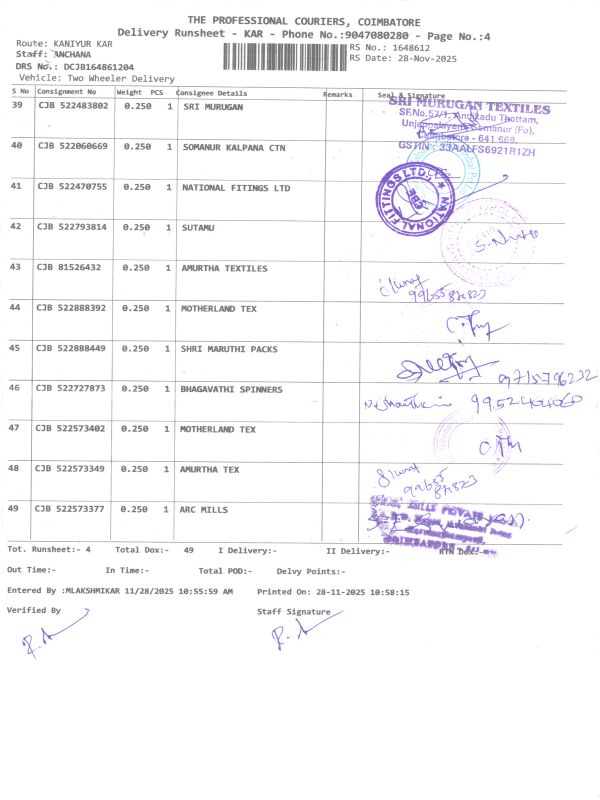 THE PROFESSIONAL COURIERS, COIMBATORE
Delivery Runsheet - KAR - Phone No.:9047080280 - Page No.:4
Route: KANIYUR KAR RS No.: 1648612
Staff: ANCHANA RS Date: 28-Nov-2025
DRS No.: DCJB164861204
Vehicle: Two Wheeler Delivery
S No Consignment No Weight PCS Consignee Details Remarks Seal & Signature
39 CJB 522483802 0.250 1 SRI MURUGAN
SRI MURUGAN TEXTILES
SF.No.57/1, Thottam,
Unjappalayam, Somanur (Po),
Coimbatore - 641 668.
GSTIN : 33AALFS6921R1ZH
40 CJB 522060669 0.250 1 SOMANUR KALPANA CTN
41 CJB 522470755 0.250 1 NATIONAL FITINGS LTD
NATIONAL FITTINGS LTD.
CBE
42 CJB 522793814 0.250 1 SUTAMU
43 CJB 81526432 0.250 1 AMURTHA TEXTILES
44 CJB 522888392 0.250 1 MOTHERLAND TEX
45 CJB 522888449 0.250 1 SHRI MARUTHI PACKS
46 CJB 522727873 0.250 1 BHAGAVATHI SPINNERS
47 CJB 522573402 0.250 1 MOTHERLAND TEX
48 CJB 522573349 0.250 1 AMURTHA TEX
99655
87823
49 CJB 522573377 0.250 1 ARC MILLS
MILLS PRIVATE
Tot. Runsheet:- 4 Total Dox:- 49 I Delivery:- II Delivery:- RTN Dox:-
Out Time:- In Time:- Total POD:- Delvy Points:-
Entered By :MLAKSHMIKAR 11/28/2025 10:55:59 AM Printed On: 28-11-2025 10:58:15
Verified By Staff Signature